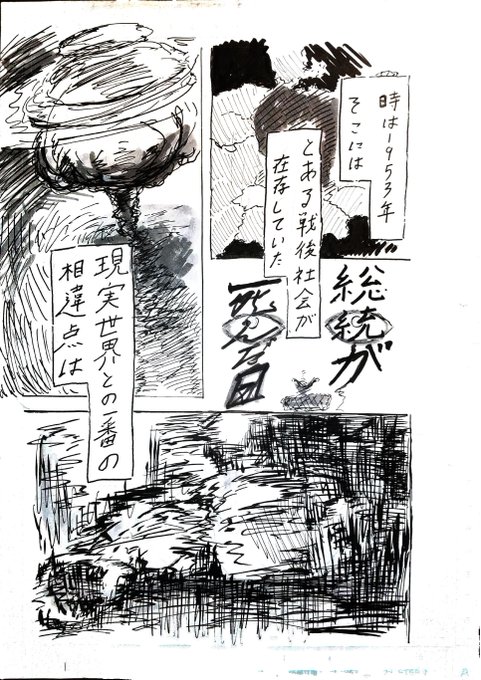 時は1953年
そこには
とある戦後社会が
在存していた
総統が
死んだ日
現実世界との一番の
相違点は